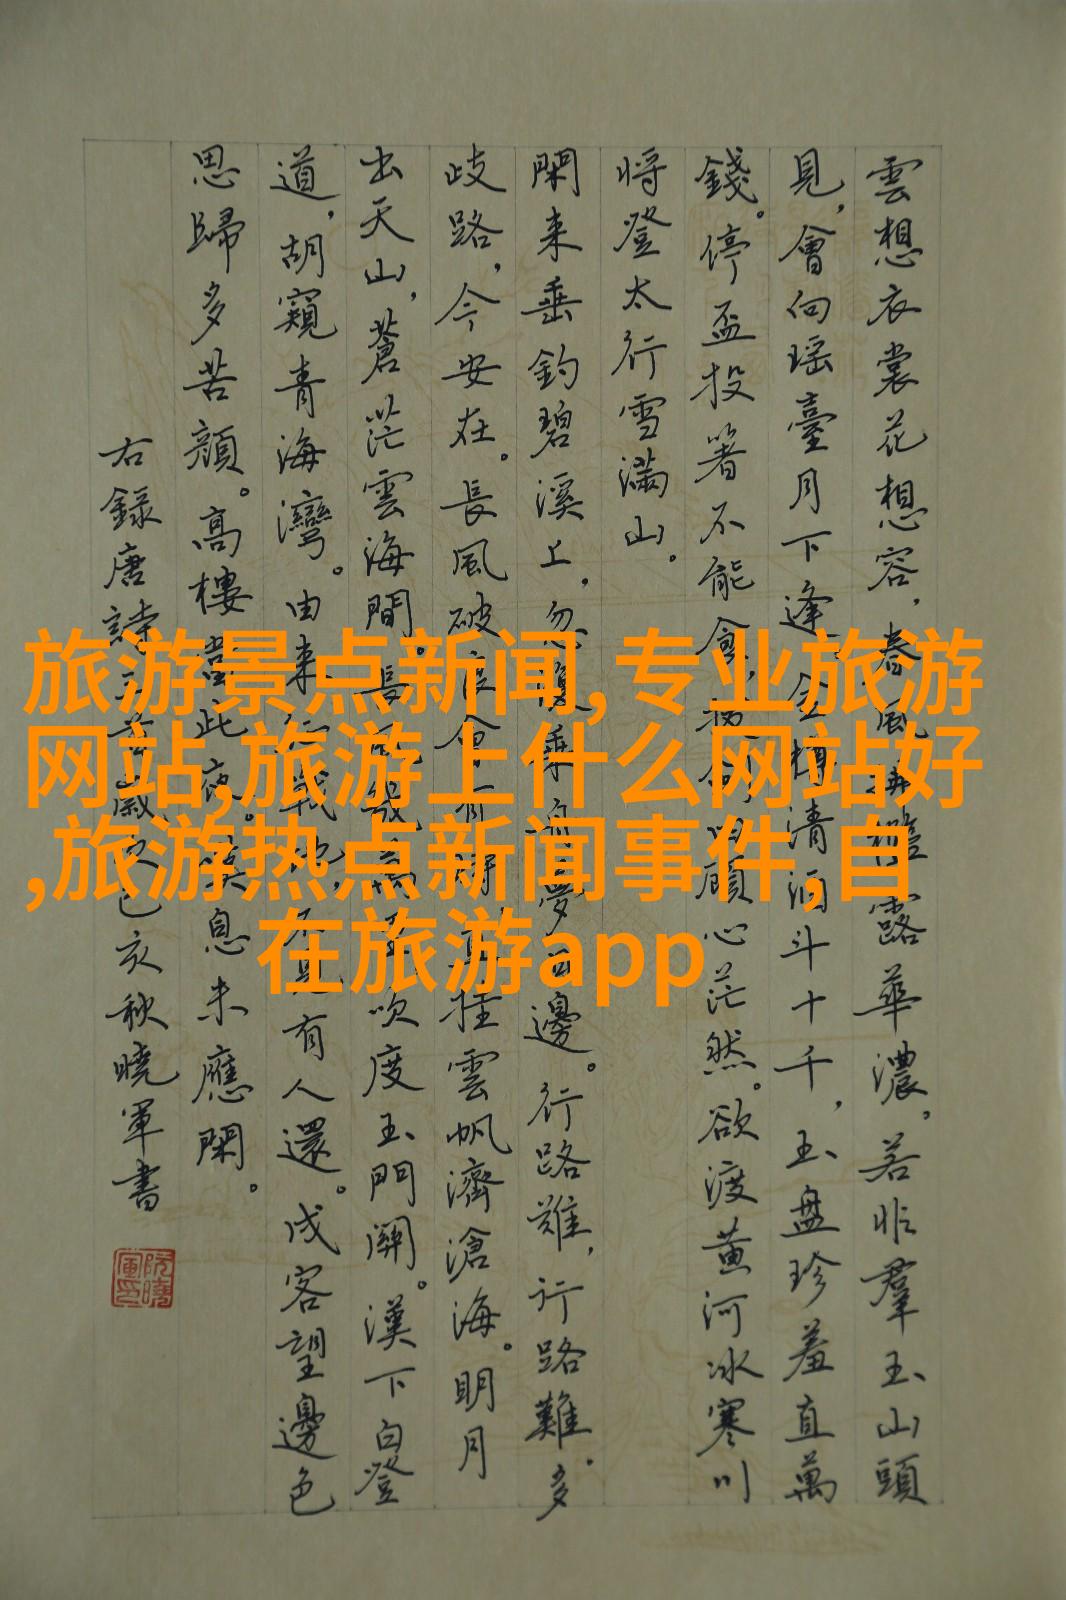 雲想衣裳花想容，春風拂檻露華濃，若非羣玉山頭
見，會向瑶臺月下逢。金樽清酒斗十千，玉盤珍羞直萬
錢。停盃投箸不能食，拔劍四顧心茫然。欲渡黄河冰寒川
將登太行雪滿山。
閑来垂釣碧溪上，忽復乘舟夢日邊。行路難，行路難。多
歧路，今安在。長風破浪會有時，直挂雲帆濟滄海。明月
出天山，蒼茫雲海間。長風幾萬里，吹度玉門關。漢下白登
道，胡窺青海灣。由来征戰地，不見有人還。戍客望邊色
思歸多苦顏。高樓當此夜，嘆息未應閑。
右録唐詩三首歲次己亥秋曉軍書
阮曉軍印
旅游景点新闻,专业旅游
网站,旅游上什么网站好
,旅游热点新闻事件,自
在旅游app